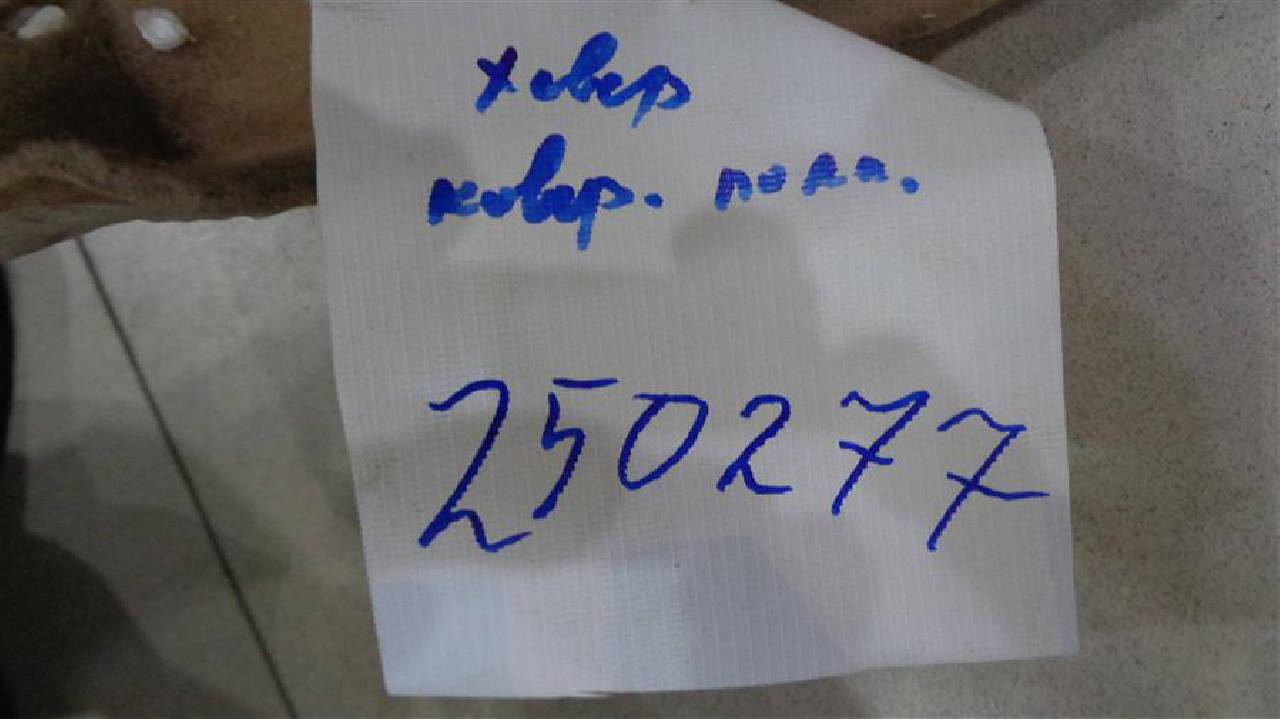 Ховер
ковер. пола.
250277